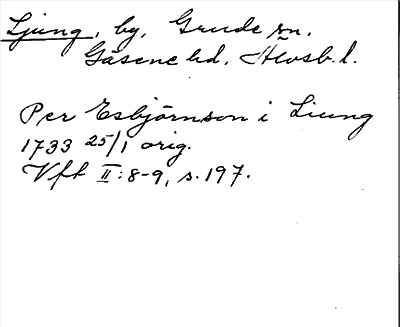 Ljung, by, Grude sn.
Gäsene hd. Älvsb. l.
Per Esbjörnson i Liung
1733 25/1 orig.
Vft II:8-9, s. 197.